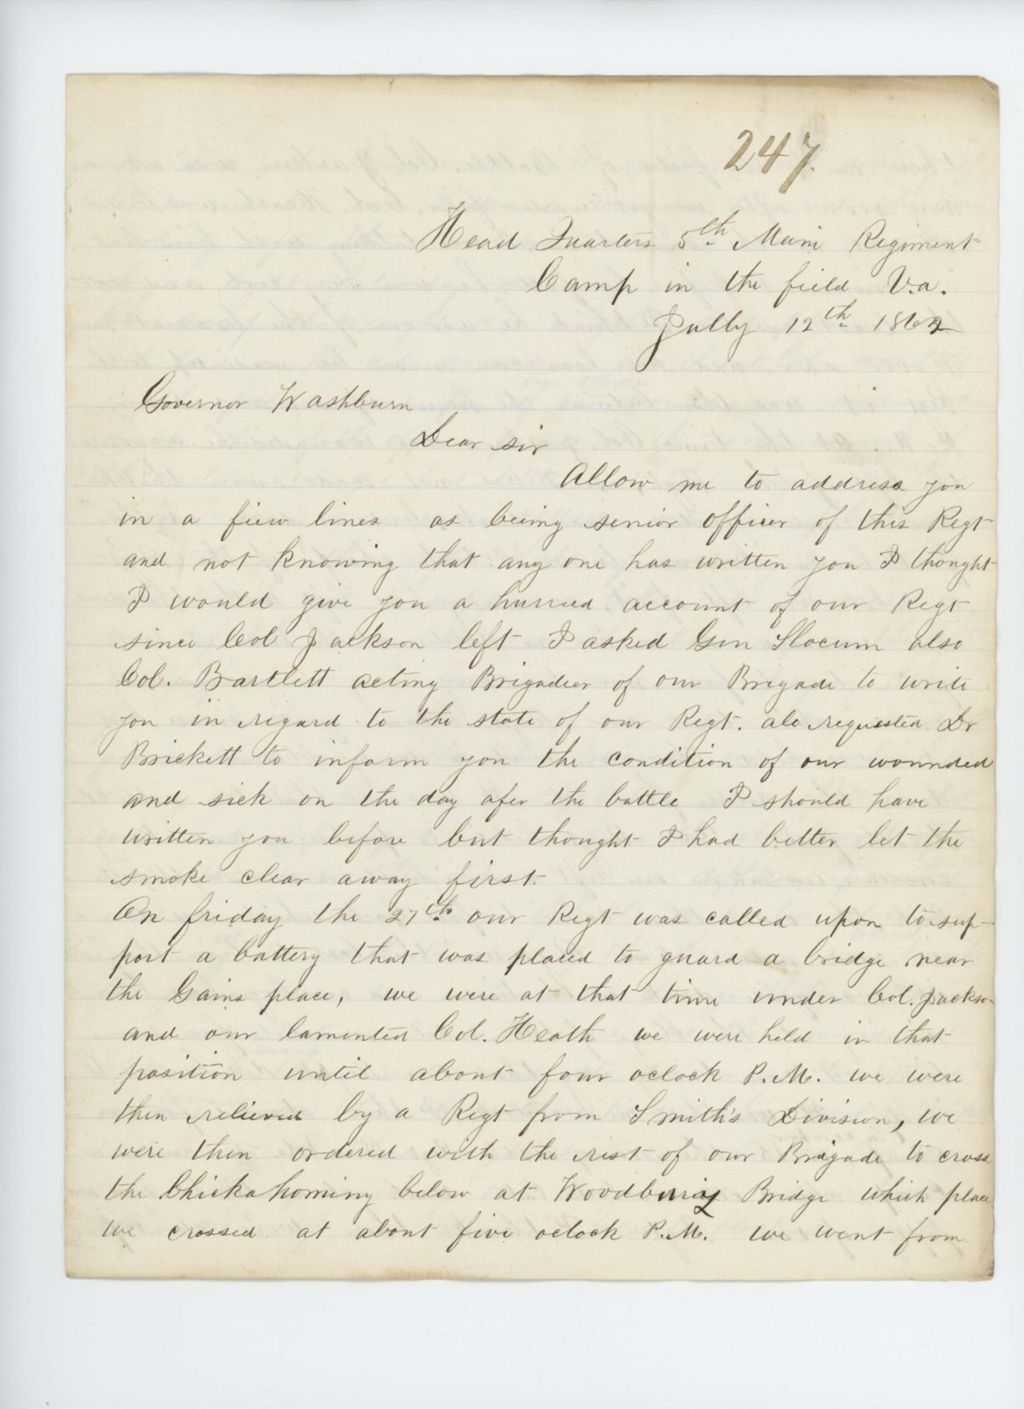 247.
Head Quarters 5th Main Regiment
Camp in the field V.a.
Jully 12th 1862
Governor Washburn
Dear sir
Allow me to address you
in a fiew lines as being senior officer of this Regt
and not knowing that any one has written you I thought
I would give you a hurried account of our Regt
since Col Jackson left I asked Gen Slocum also
Col. Bartlett acting Brigadier of our Brigade to write
you in regard to the state of our Regt. alo requested Dr
Brickett to inform you the condition of our wounded
and sick on the day afer the battle I should have
written you before but thought I had better let the
smoke clear away first.
On friday the 27th our Regt was called upon to sup-
port a battery that was placed to guard a bridge near
the Gains place, we were at that time under Col. Jackson
and our lamented Col. Heath we were held in that
position until about four oclock P.M. we were
then relieved by a Regt from Smith's Division, we
were then ordered with the rest of our Brigade to cross
the Chickahominy below at Woodburiy Bridge which place
we crossed at about five oclock P.M. we went from